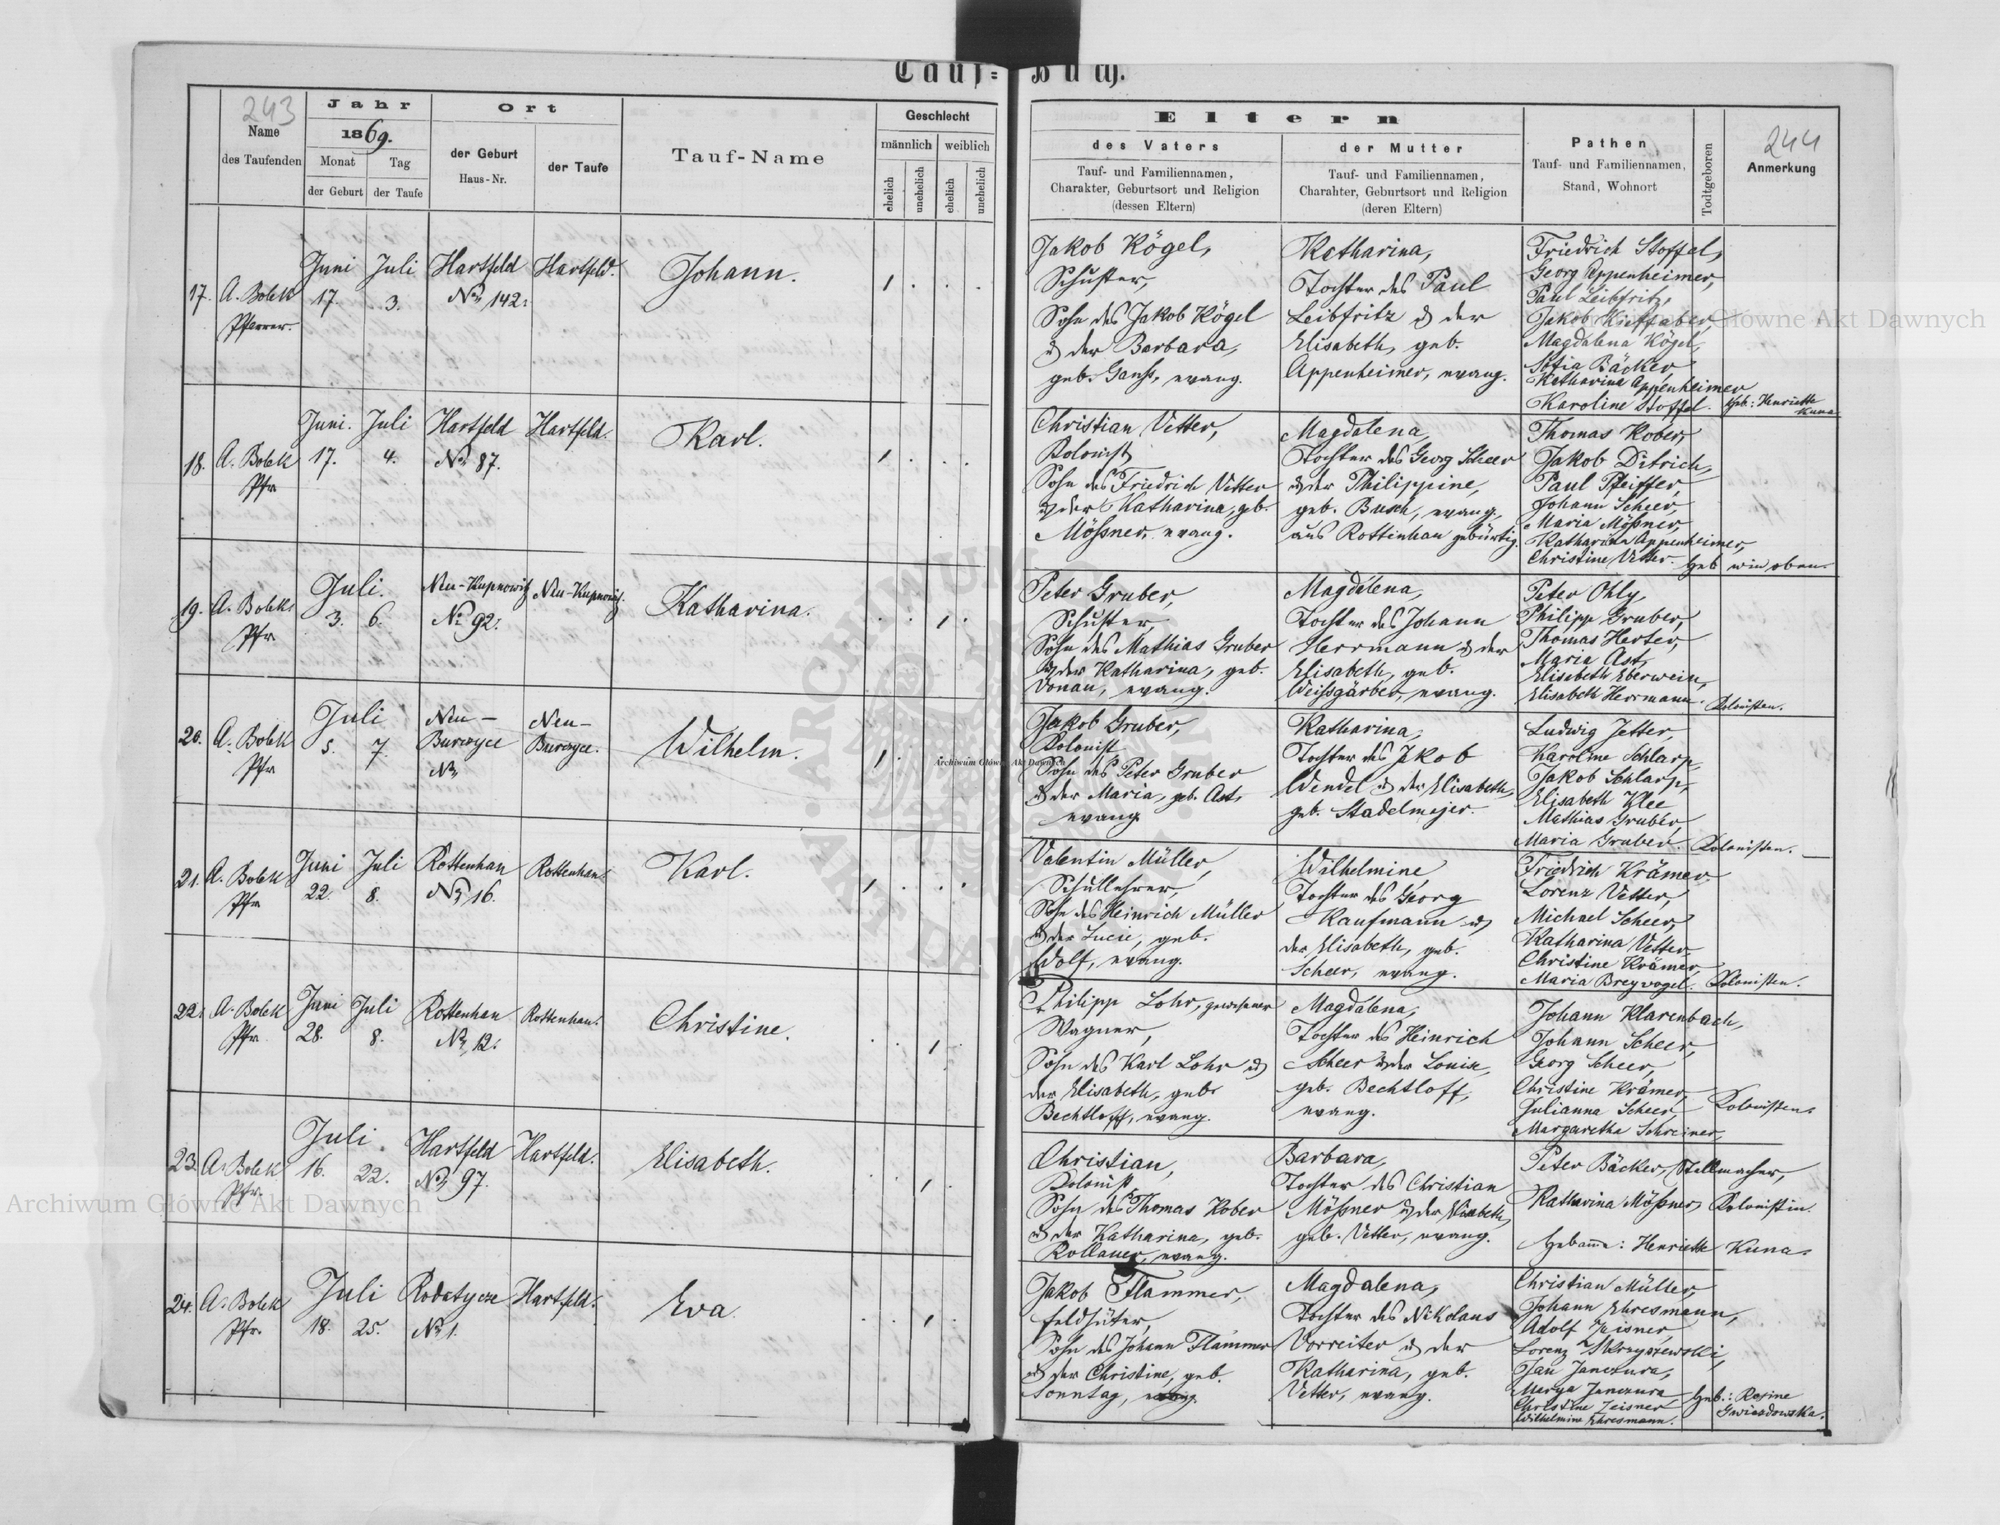 Tauf-Buch.
243
Name
des Taufenden
Jahr
1869.
Monat
der Geburt
Tag
der Taufe
Ort
der Geburt
Haus-Nr.
der Taufe
Tauf-Name
Geschlecht
männlich
weiblich
ehelich
unehelich
ehelich
unehelich
Eltern
des Vaters
Tauf- und Familiennamen,
Charakter, Geburtsort und Religion
(dessen Eltern)
der Mutter
Tauf- und Familiennamen,
Charakter, Geburtsort und Religion
(deren Eltern)
Pathen
Tauf- und Familiennamen,
Stand, Wohnort
Todtgeboren
244
Anmerkung
17.
A. Bolek
Pfarrer.
Juni
17.
Juli
3.
Hartfeld
No 142.
Hartfeld.
Johann.
Jakob Kögel,
Schuster,
Sohn des Jakob Kögel
u der Barbara,
geb. Ganß, evang.
Katharina,
Tochter des Paul
Leibfritz u der
Elisabeth, geb.
Appenheimer, evang.
Friedrich Stoffel,
Georg Appenheimer,
Paul Leibfritz,
Jakob
Magdalena Kögel,
Sofia Bäcker,
Katharina Appenheimer
Karoline Stoffel.
Geb: Henriette
Kuna
18.
A. Bolek
Pfr
Juni.
17.
Juli
4.
Hartfeld
No 87.
Hartfeld.
Karl.
Christian Vetter,
Kolonist,
Sohn des Friedrich Vetter
u der Katharina, geb.
Mößner, evang.
Magdalena,
Tochter des Georg Scheer
u der Philippine,
geb. Busch, evang.,
aus Rottenhan gebürtig.
Thomas Kober,
Jakob Ditrich,
Paul Pfeiffer,
Johann Scheer,
Maria Mößner,
Katharina Appenheimer,
Christine Vetter.
Geb wie oben.
19.
A. Bolek
Pfr
Juli.
3.
6.
Neu-Kupnowitz
No 92.
Neu-Kupnowitz.
Katharina.
Peter Gruber,
Schuster,
Sohn des Mathias Gruber
u der Katharina, geb.
Donau, evang.
Magdalena,
Tochter des Johann
Herrmann u der
Elisabeth, geb.
Weißgärber, evang.
Peter Ohly,
Philipp Gruber,
Thomas Herter,
Maria Ast,
Elisabeth Eberwein,
Elisabeth Herrmann.
Kolonisten.
20.
A. Bolek
Pfr
Juli
5.
7.
Neu-
Burczyce
No
Neu-
Burczyce.
Wilhelm.
Jakob Gruber,
Kolonist
Sohn des Peter Gruber
u der Maria, geb. Ast,
evang
Katharina,
Tochter des Jakob
Wendel u der Elisabeth,
geb. Stadelmejer.
Ludwig Jetter,
Karoline Schlarp,
Jakob Schlarp,
Elisabeth Klee
Mathias Gruber,
Maria Gruber
Kolonisten.
21.
A. Bolek
Pfr
Juni
22.
Juli
8.
Rottenhan
No 16.
Rottenhan.
Karl.
Valentin Müller,
Schullehrer,
Sohn des Heinrich Müller
u der Lucie, geb.
Wolf, evang.
Wilhelmine
Tochter des Georg
Kaufmann u
der Elisabeth, geb.
Scheer, evang.
Friedrich Krämer
Lorenz Vetter,
Michael Scheer,
Katharina Vetter,
Christine Krämer,
Maria Breyvogel.
Kolonisten.
22.
A. Bolek
Pfr
Juni
28.
Juli
8.
Rottenhan
No 12.
Rottenhan.
Christine.
Philipp Lohr, gewesener
Wagner,
Sohn des Karl Lohr u
der Elisabeth, geb.
Bechtloff, evang.
Magdalena,
Tochter des Heinrich
Scheer u der Louise,
geb. Bechtloff,
evang.
Johann Klarenbach,
Johann Scheer,
Georg Scheer,
Christine Krämer,
Julianna Scheer
Margaretha Schreiner,
Kolonisten.
23.
A. Bolek
Pfr.
Juli.
16.
22.
Hartfeld
No 97.
Hartfeld.
Elisabeth.
Christian,
Kolonist
Sohn des Thomas Kober
u der Katharina, geb.
Rollauer, evang.
Barbara,
Tochter des Christian
Mößner u der Elisabeth,
geb. Vetter, evang.
Peter Bäcker, Stellmacher,
Katharina Mößner, Kolonistin.
Hebamme: Henriette Kuna.
24.
A. Bolek
Pfr.
Juli
18.
25.
Rodatycze
No 1.
Hartfeld.
Eva.
Jakob Flammer,
Feldhüter,
Sohn des Johann Flammer
u der Christine, geb.
Sonntag, evang.
Magdalena,
Tochter des Nikolaus
Vorreiter u der
Katharina, geb.
Vetter, evang.
Christian Müller,
Johann Ehresmann,
Adolf Zeisner,
Lorenz
Jan Janczura,
Marya Janczura
Christine Zeisner
Wilhelmine Ehresmann.
Geb.: Rosine
Gwiazdowska.
Archiwum Główne Akt Dawnych
Archiwum Główne Akt Dawnych
Archiwum Główne Akt Dawnych